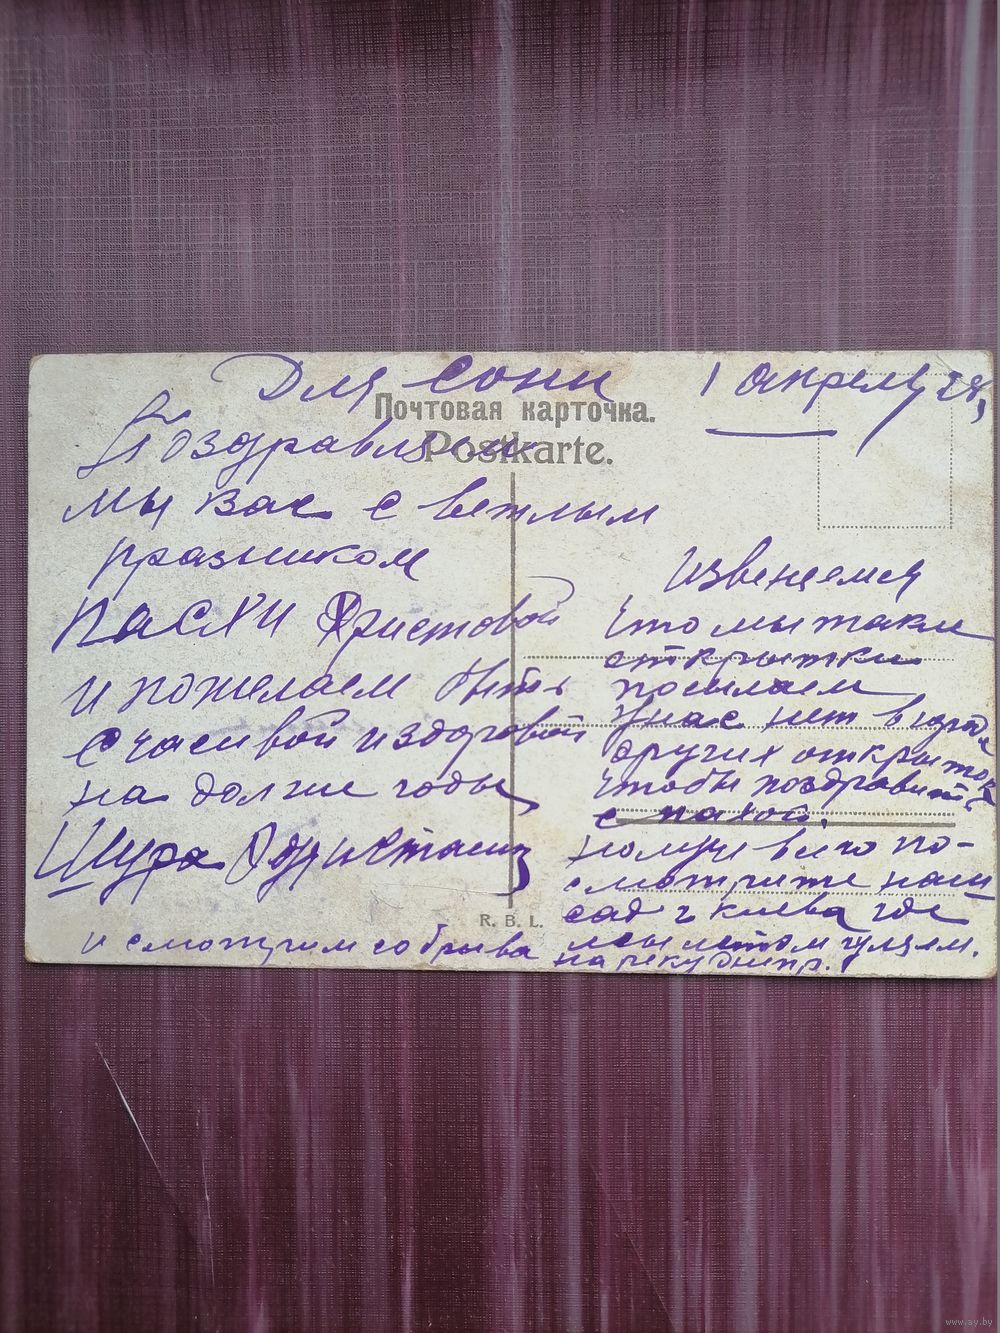 Для Сони 1 апреля 28,
Почтовая карточка.
Postkarte.
Поздравляем
мы вас с ветлым
празником
ПАСХИ Христовой
и пожелаем быть
счасивой и здоровой
на долгие годы
Шура
Извеняемся
что мы таки
открытки
посилаем
у нас нет в городе
других открыток
чтобы поздравить
с пахой.
по-
смотрите наш
сад г Киева где
мы летом гуляем.
и смотрим со брыва
на реку Днипр.
R. B. L.
www.ay.by